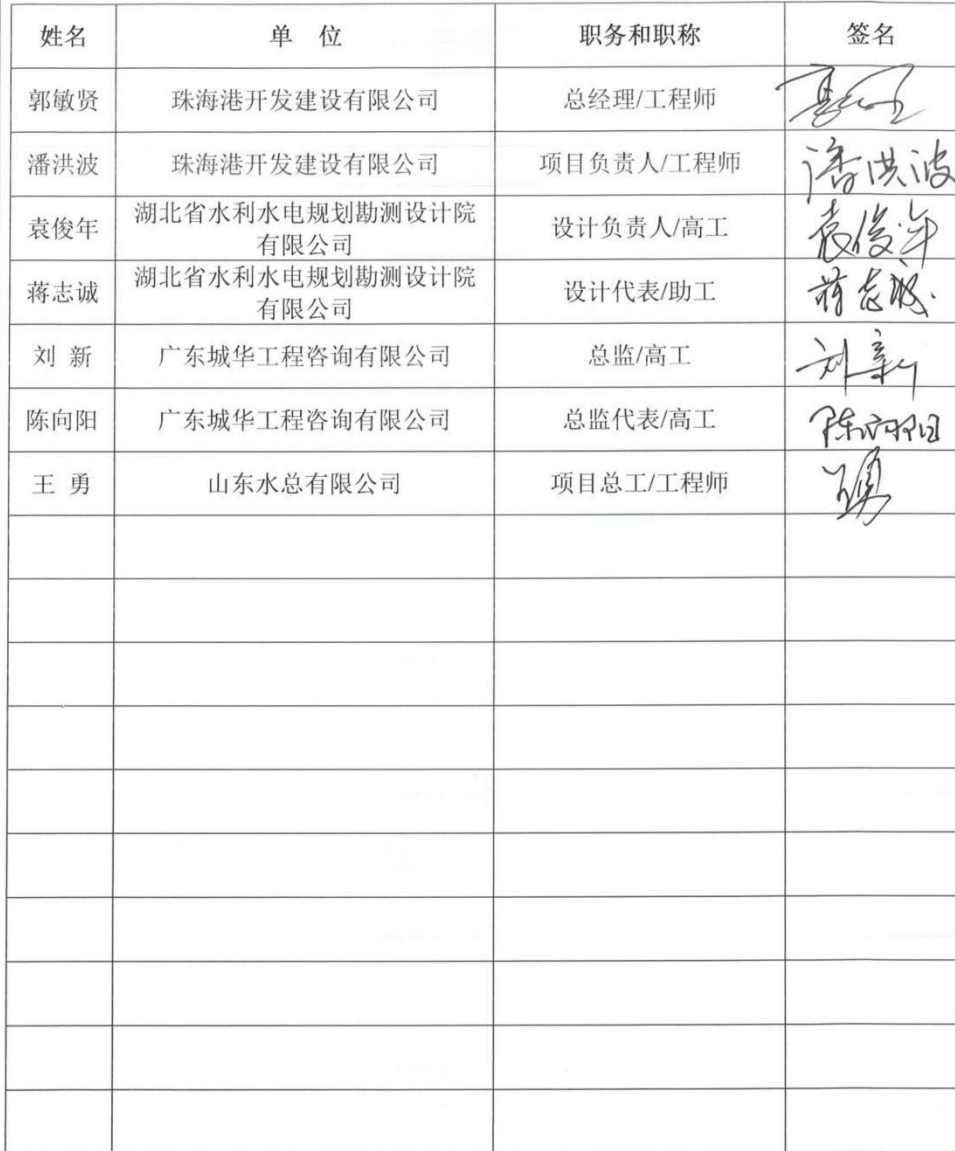 姓名 单 位 职务和职称 签名
郭敏贤 珠海港开发建设有限公司 总经理/工程师
潘洪波 珠海港开发建设有限公司 项目负责人/工程师 潘洪波
袁俊年 湖北省水利水电规划勘测设计院 设计负责人/高工 袁俊年
有限公司
蒋志诚 湖北省水利水电规划勘测设计院 设计代表/助工 蒋志诚
有限公司
刘 新 广东城华工程咨询有限公司 总监/高工 刘新
陈向阳 广东城华工程咨询有限公司 总监代表/高工 陈向阳
王 勇 山东水总有限公司 项目总工/工程师 王勇